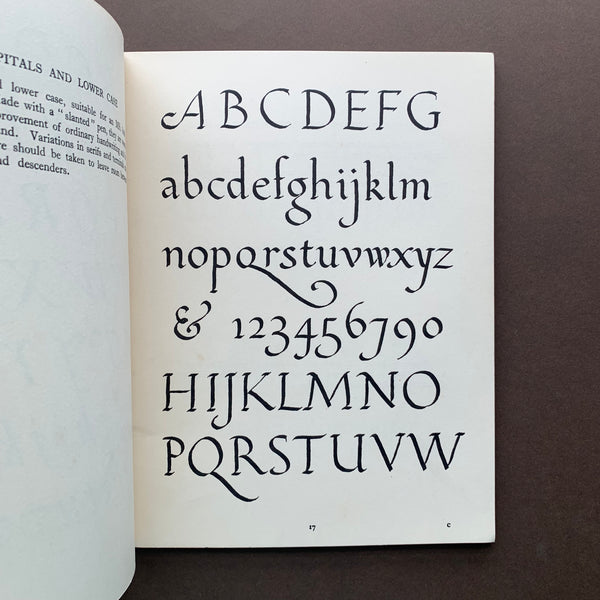 PITALS AND LOWER CASE
lower case, suitable for an MS.
ade with a "slanted" pen, they
provement of ordinary handwriting
nd. Variations in serifs and
re should be taken to leave
nd descenders.
A B C D E F G
abcdefghijklm
nopqrstuvwxyz
& 123456790
HIJKLMNO
PQRSTUVW
17 c